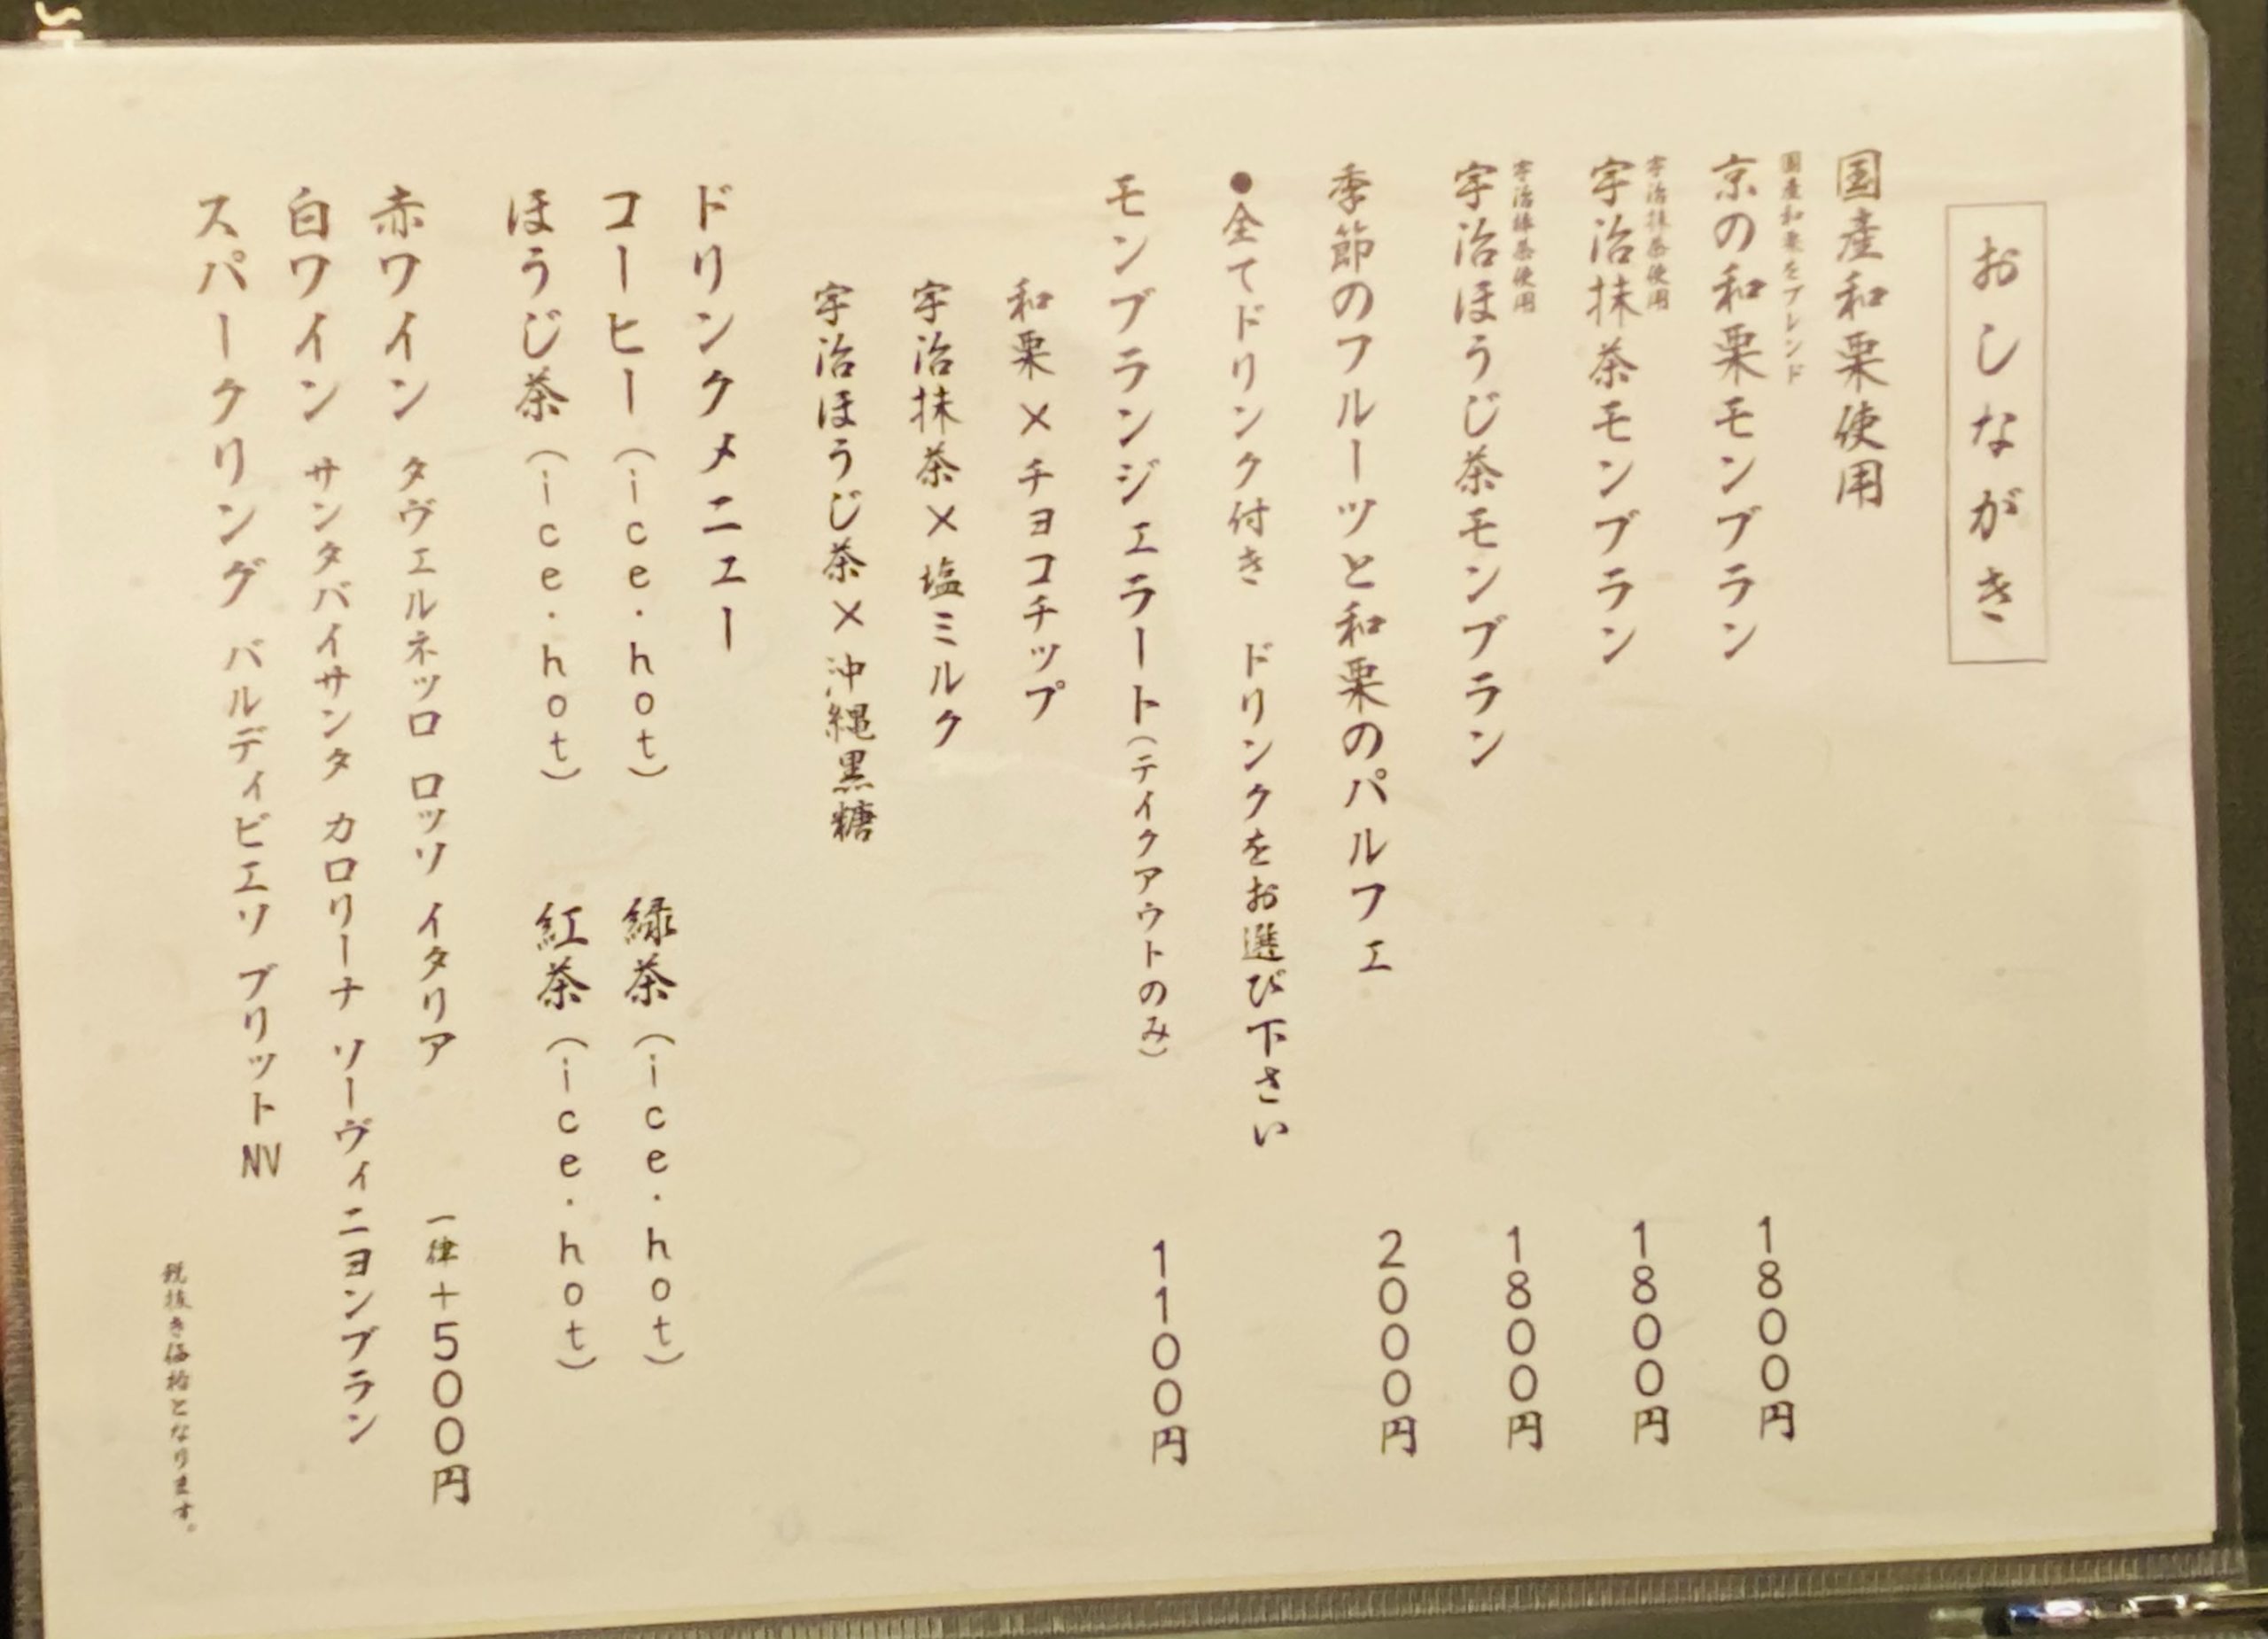 おしながき
国産和栗使用
国産和栗をブレンド
京の和栗モンブラン 1800円
宇治抹茶使用
宇治抹茶モンブラン 1800円
宇治抹茶使用
宇治ほうじ茶モンブラン 1800円
季節のフルーツと和栗のパルフェ 2000円
●全てドリンク付き ドリンクをお選び下さい
モンブランジェラート(テイクアウトのみ) 1100円
和栗×チョコチップ
宇治抹茶×塩ミルク
宇治ほうじ茶×沖縄黒糖
ドリンクメニュー
コーヒー(ice・hot) 緑茶(ice・hot)
ほうじ茶(ice・hot) 紅茶(ice・hot)
赤ワイン タヴェルネッロ ロッソ イタリア 一律+500円
白ワイン サンタバイサンタ カロリーナ ソーヴィニヨンブラン
スパークリング バルディビエソ ブリットNV
税抜き価格となります。